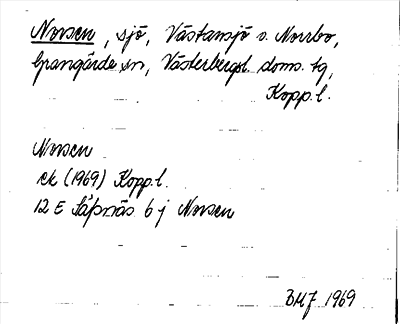 Norsen, sjö, Västansjö o. Norrbo,
Grangärde sn, Västerbergsl. doms. tg,
Kopp. l.
Norsen
ek (1969) Kopp. l.
12 E Säfsnäs 6 j Norsen
BHJ 1969